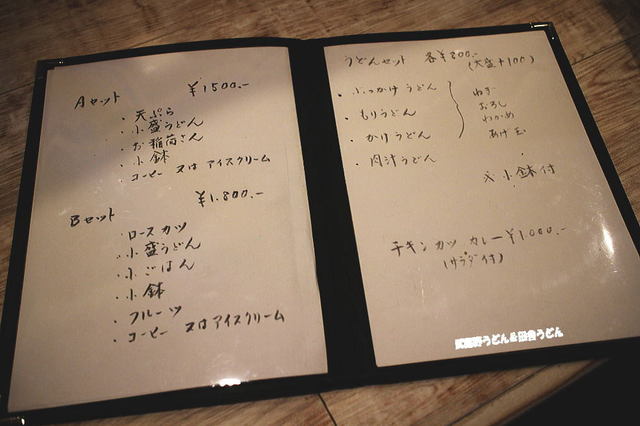 Aセット ¥1500.-
・天ぷら
・小盛うどん
・お稲荷さん
・小鉢
・コーヒー 又は アイスクリーム
Bセット ¥1.800.-
・ロースカツ
・小盛うどん
・小ごはん
・小鉢
・フルーツ
・コーヒー 又は アイスクリーム
うどんセット 各¥800.-
(大盛+100)
・ぶっかけうどん
・もりうどん
・かけうどん
・肉汁うどん
ねぎ
おろし
わかめ
あげ玉
※小鉢付
チキンカツ カレー ¥1000.-
(サラダ付)
武蔵野うどん&田舎うどん